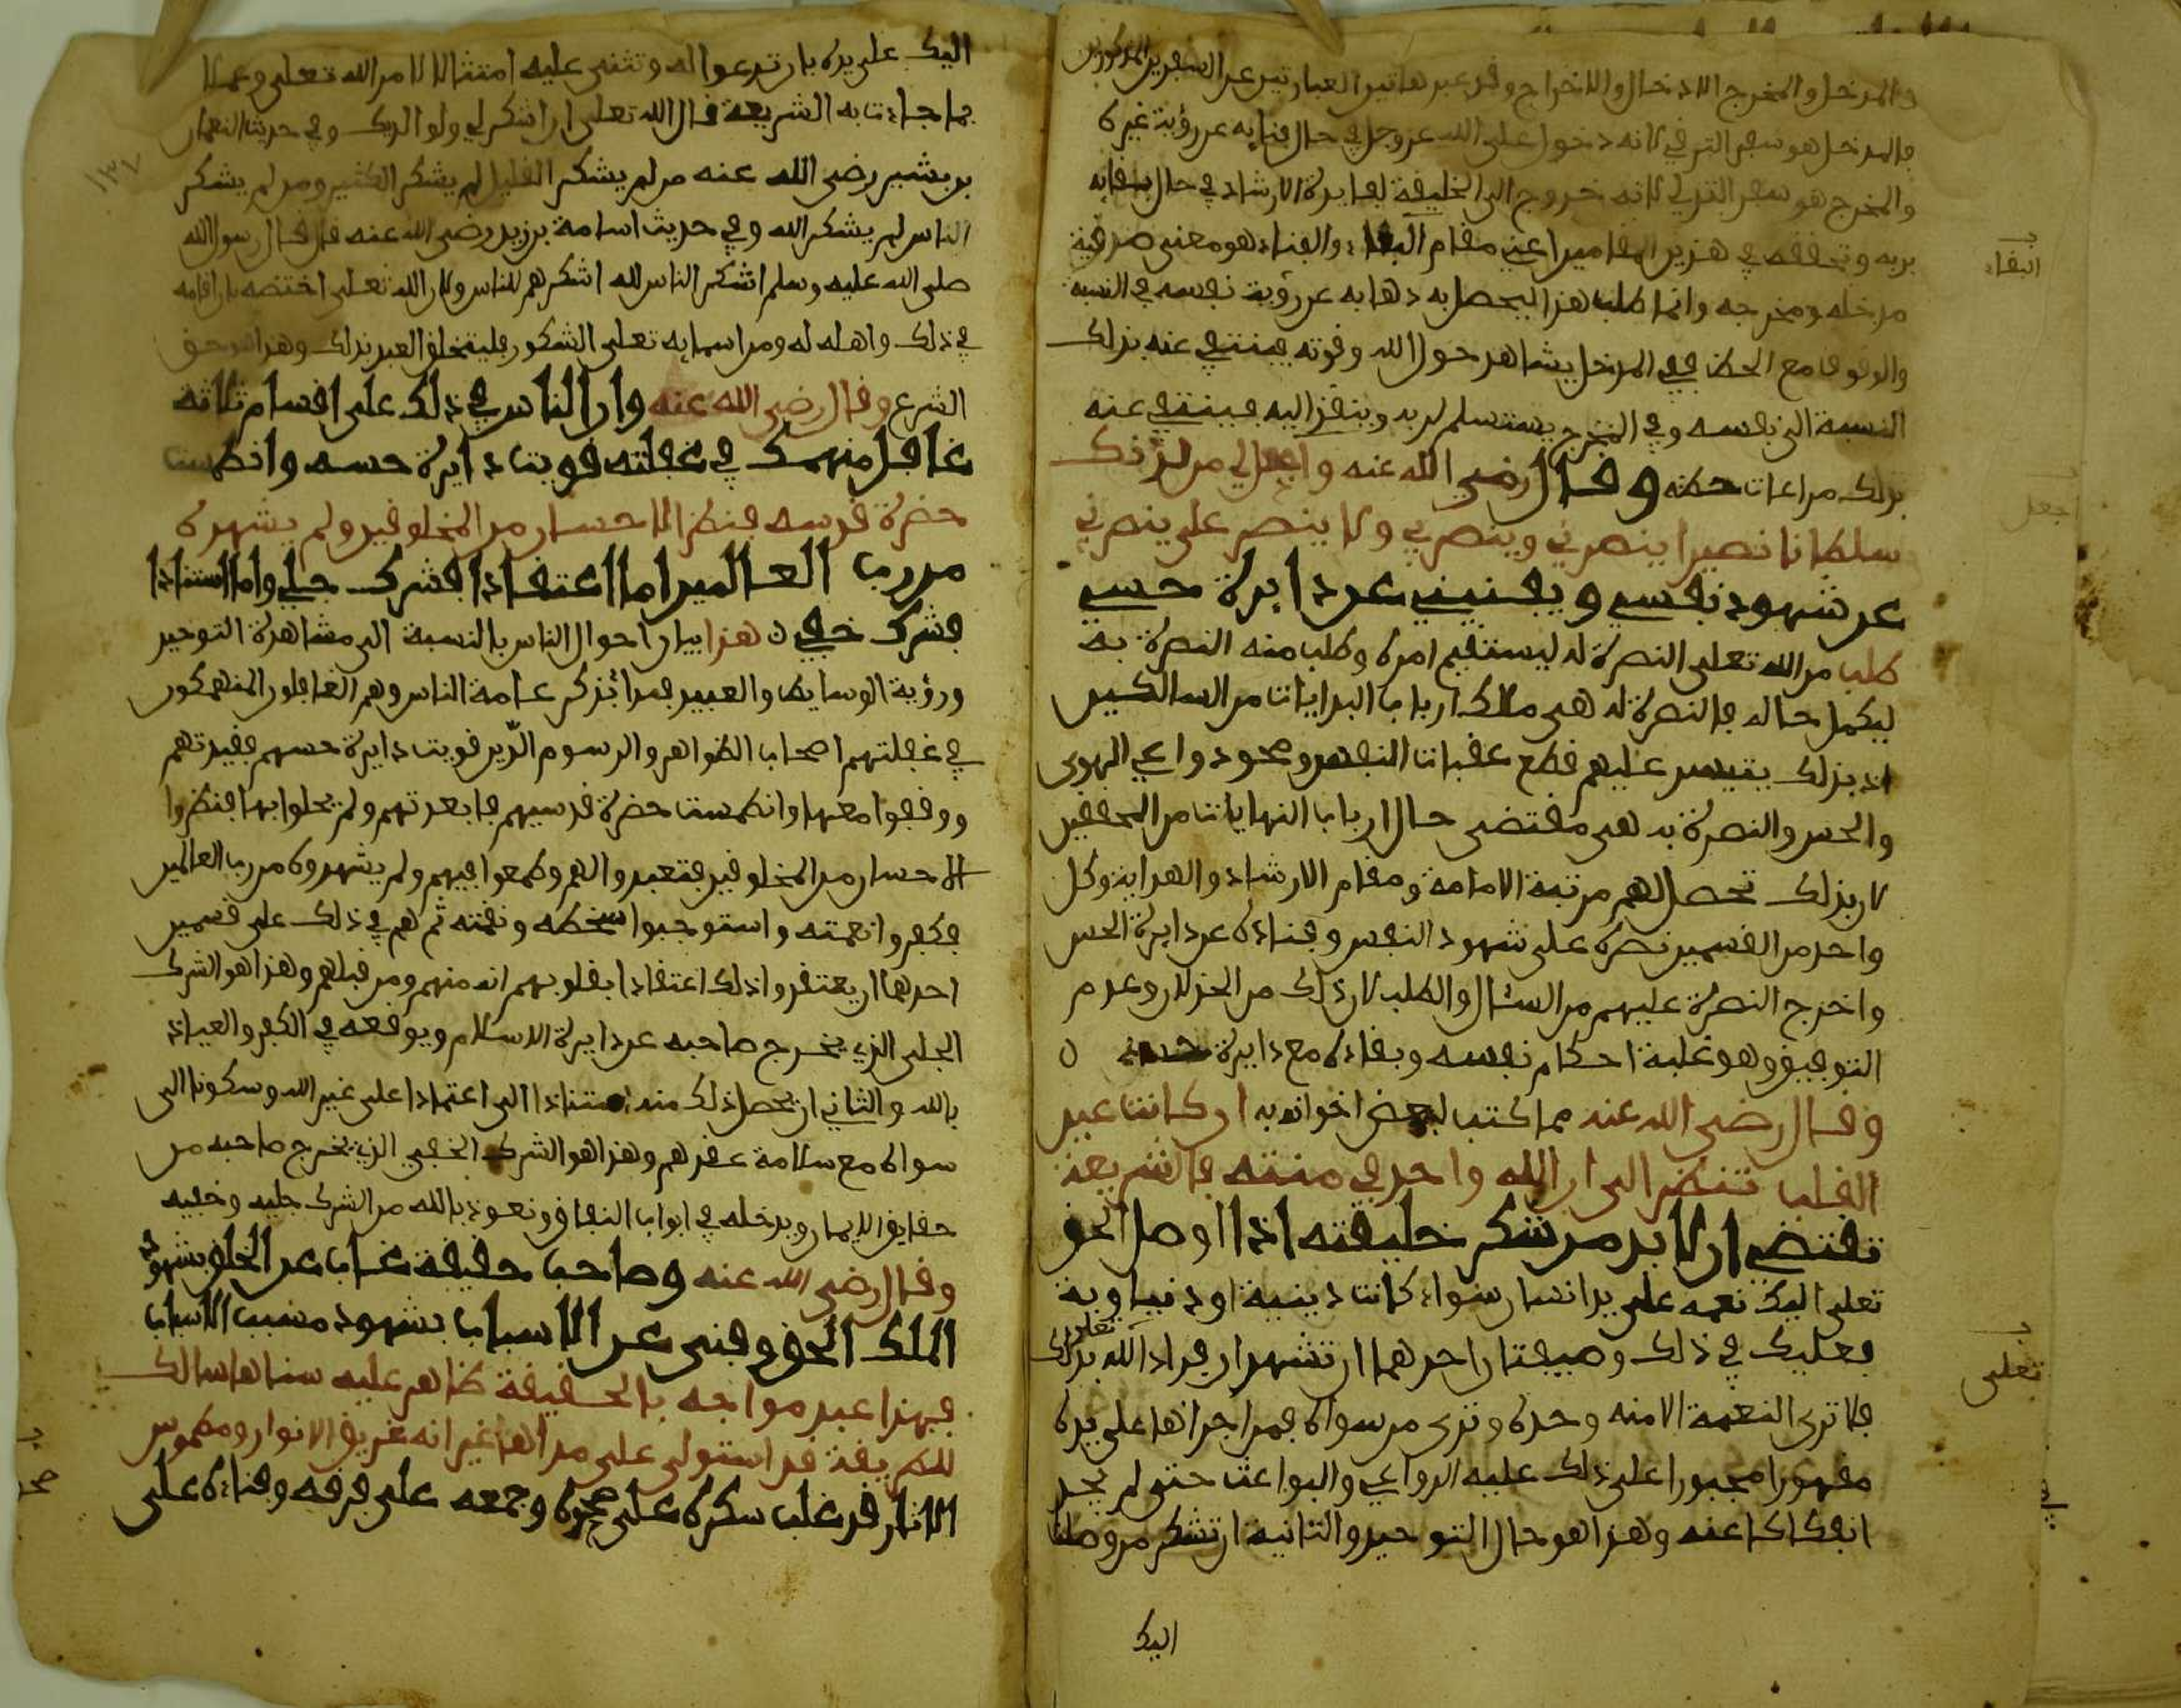 والمدخل والمخرج الادخال والاخراج وقد عبر هاتين العبارتين عن السفرين المذكورين
فالمدخل هو سفر الترقي لانه دخول على الله عز وجل في حال فنايه عن رؤية غيره
والمخرج هو سفر التدلي لانه خروج الى الخليفة لفايدة الارشاد في حال بقايه
بربه وتحققه في هذين المقامين اعني مقام البقاء والفناء هو معنى صدقية
مدخله ومخرجه وانما طلب هذا ليحصل به ذهابه عن رؤية نفسه في النسبة
والوقوف مع الحظ ففي المدخل يشاهد حول الله وقوته فينتفي عنه بذلك
النسبة الى نفسه وفي المخرج يستسلم لربه وينقذ اليه فينتفي عنه
بذلك مراعات حظه وقال رضي الله عنه واجعل لي من لدنك
سلطانا نصيرا ينصرني وينصر بي ولا ينصر علي ينصرني
على شهود نفسي ويفنيني عن دايرة حسي
طلب من الله تعلى النصرة له ليستقيم امره وطلب منه النصرة به
ليكمل حاله فالنصرة له هي ملك ارباب البدايات من السالكين
اذ بذلك يتيسر عليهم قطع عقبات النفس ومحو دواعي الهوى
والحس والنصرة به هي مقتضى حال ارباب النهايات من المحققين
لان بذلك تحصل لهم مرتبة الامامة ومقام الارشاد والهداية وكل
واحد من القسمين نصره على شهود النفس وفناءه عن دايرة الحس
واخرج النصرة عليهم من السئال والطلب لان ذلك من الخذلان وعدم
التوفيق وهو غلبة احكام نفسه وبقاءه مع دايرة حسه ن
وقال رضي الله عنه مما كتب لبعض اخوانه به ان كانت عين
القلب تنظر الى ان الله واحد في منته فالشريعة
تقتضي ان لا بد من شكر خليقته اذا اوصل الحق
تعلى اليك نعمه على يد انسان سواء كانت دينية او دنياوية
فعليك في ذلك وضيفتان احدهما ان تشهد ان مراد الله تعلى بذلك
فلا ترى النعمة الا منه وحده وترى من سواه ممن اجراها على يده
مقهورا مجبورا على ذلك عليه الدواعي والبواعث حتى لم يجد
انفكاكا عنه وهذا هو حال التوحيد والثانية ان تشكر من وصلت
اليك
البقاء
جعل
تعلى
اليك على يده بان تدعوا له وتثني عليه امتثالا لامر الله تعلى وعملا
بما جاءت به الشريعة قال الله تعلى ان اشكر لي ولوالديك وفي حديث النعمان
بن بشير رضي الله عنه من لم يشكر القليل لم يشكر الكثير ومن لم يشكر
الناس لم يشكر الله وفي حديث اسامة بن زيد رضي الله عنه قال قال رسول الله
صلى الله عليه وسلم اشكر الناس لله اشكرهم للناس ولان الله تعلى اختصه بان اقامه
في ذلك واهله له ومن اسمايه تعلى الشكور فليتخلق العبد بذلك وهذا هو حق
الشرع وقال رضي الله عنه وان الناس في ذلك على اقسام ثلاثة
غافل منهمك في غفلته قويت دايرة حسه وانطمست
حضرة قدسه فنظر الاحسان من المخلوقين ولم يشهده
من رب العالمين اما اعتقادا فشرك جلي واما استنادا
فشرك خفي ن هذا بيان احوال الناس بالنسبة الى مشاهدة التوحيد
ورؤية الوسايط والعبيد فبدا بذكر عامة الناس وهم الغافلون المنهمكون
في غفلتهم اصحاب الظواهر والرسوم الذين قويت دايرة حسهم فقيدتهم
ووقفوا معها وانطمست حضرة قدسهم فابعدتهم ولم يحلوا بها فنظروا
الاحسان من المخلوقين فتعبدوا لهم وطمعوا فيهم ولم يشهدوه من رب العالمين
فكفروا نعمته واستوجبوا سخطه ونقمته ثم هم في ذلك على قسمين
احدهما ان يعتقدوا ذلك اعتقادا بقلوبهم انه منهم ومن قبلهم وهذا هو الشرك
الجلي الذي يخرج صاحبه عن دايرة الاسلام ويوقعه في الكفر والعياذ
بالله والثاني ان يحصل ذلك منه استنادا الى اعتمادا على غير الله وسكونا الى
سواه مع سلامة عقدهم وهذا هو الشرك الخفي الذي يخرج صاحبه من
حقايق الايمان ويدخله في ابواب النفاق ونعوذ بالله من الشرك جليه وخفيه
وقال رضي الله عنه وصاحب حقيقة غاب عن الخلق بشهود
الملك الحق وفني عن الاسباب بشهود مسبب الاسباب
فهذا عبد مواجه بالحقيقة ظاهر عليه سناها سالك
للطريقة قد استولى على مداها غير انه غريق الانوار ومطموس
الاثار قد غلب سكره على صحوه وجمعه على فرقه وفناءه على
١٣٧
صح